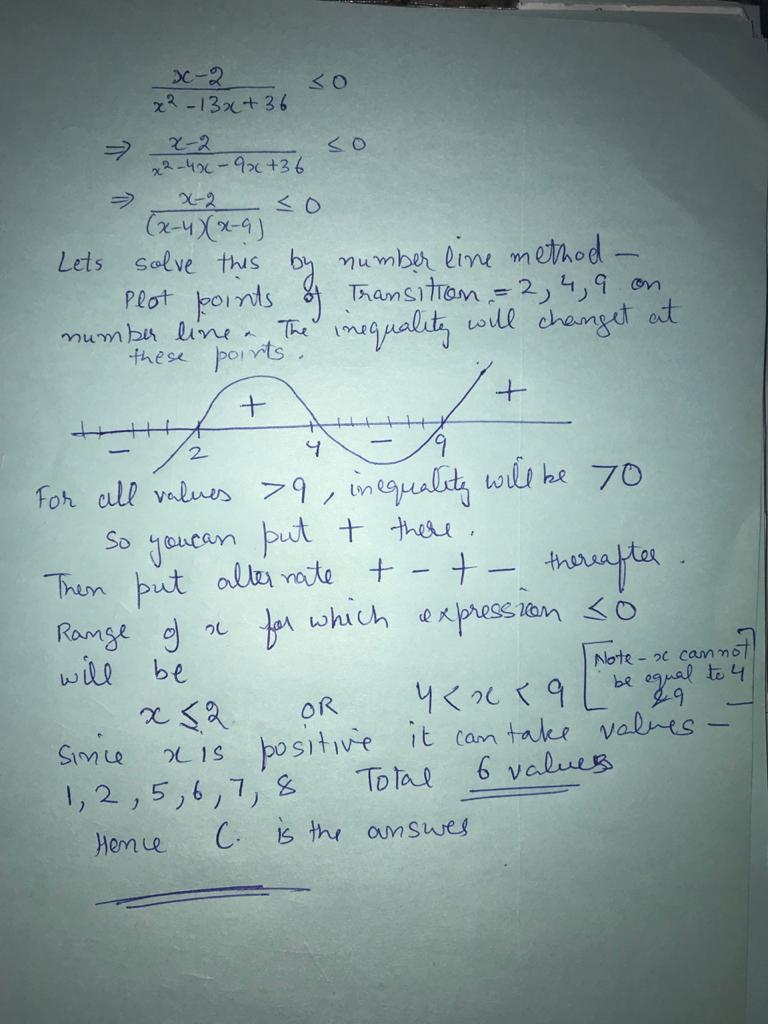 x-2 / x² -13x+36 ≤0
⇒ x-2 / x²-4x-9x+36 ≤0
⇒ x-2 / (x-4)(x-9) ≤0
Lets solve this by number line method —
Plot points of Transition = 2, 4, 9 on
number line. The inequality will changet at
these points.
+ +
- 2 4 - 9
For all values >9, inequality will be >0
So youcan put + there.
Then put alternate + - + - thereafter.
Range of x for which expression ≤0
will be
[Note - x cannot
be equal to 4
&9
x≤2 OR 4<x<9
Since x is positive it can take values -
1, 2, 5, 6, 7, 8 Total 6 values
Hence C. is the answer